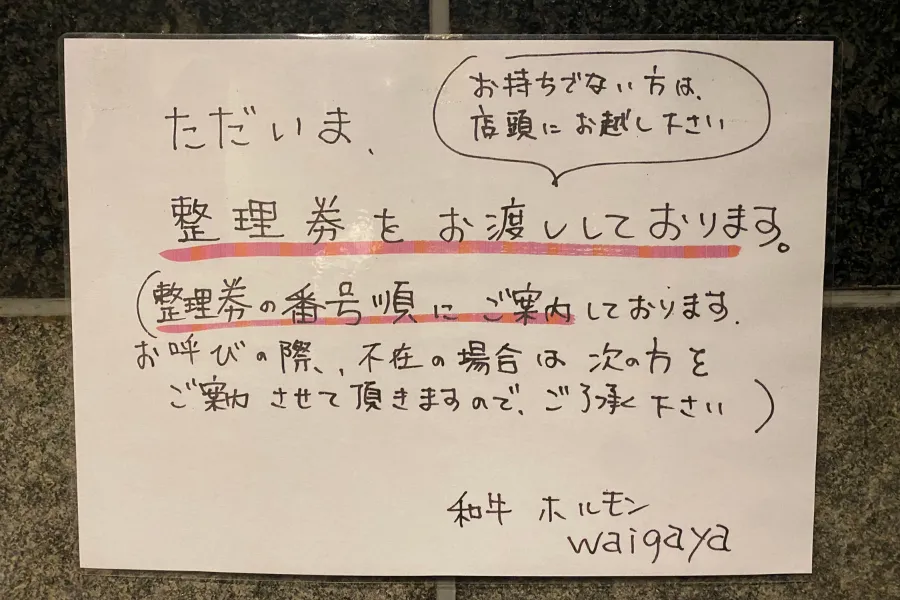 お持ちでない方は、
店頭にお越し下さい
ただいま、
整理券をお渡ししております。
(整理券の番号順にご案内しております.
お呼びの際、、不在の場合は次の方を
ご案内させて頂きますので、ご了承下さい)
和牛ホルモン
waigaya